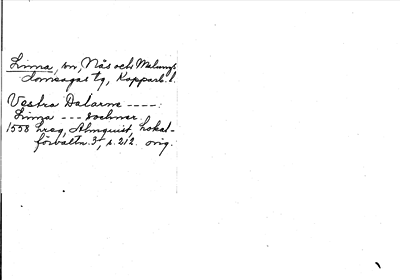 Lima, sn, Nås och Malungs
domsagas tg, Kopparb. l.
Vestra Dalarne ----:
Lima --- sochner.
1558 hreg, Almquist, Lokal-
förvaltn. 3, s. 212. orig.